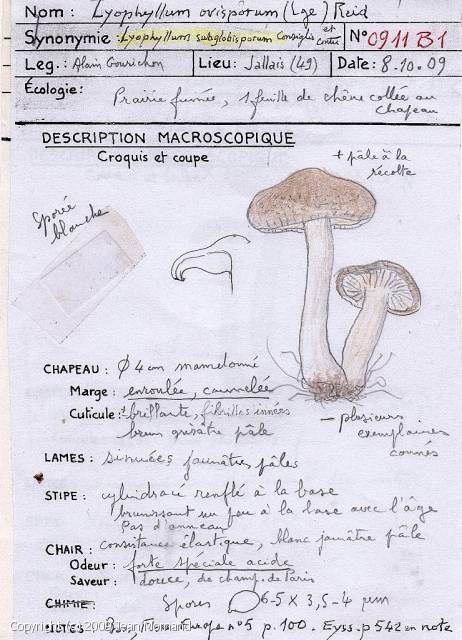 Nom : Lyophyllum ovisporum (Lge) Reid
Synonymie : Lyophyllum subglobisporum Consiglio et Contu
N° 0911 B1
Leg. : Alain Gourichon
Lieu : Jallais (49)
Date : 8-10-09
Écologie :
Prairie fumée, 1 feuille de chêne collée au
chapeau
DESCRIPTION MACROSCOPIQUE
Croquis et coupe
+ pâle à la
récolte
Sporée
blanche
CHAPEAU : Ø 4 cm mamelonné
Marge : enroulée, cannelée
Cuticule : ± brillante, fibrilles innées
brun grisâtre pâle
– plusieurs
exemplaires
connés
LAMES : sinuées jaunâtres pâles
STIPE : cylindracé renflé à la base
brunissant un peu à la base avec l'âge
Pas d'anneau
CHAIR : consistance élastique, blanc jaunâtre pâle
Odeur : forte spéciale acide
Saveur : douce, de champ. de Paris
CHIMIE : Spores 6-5 X 3,5-4 µm
Europe n°5 p.100. Eyss. p 542 en note
Copyright (c) 2009 Jean